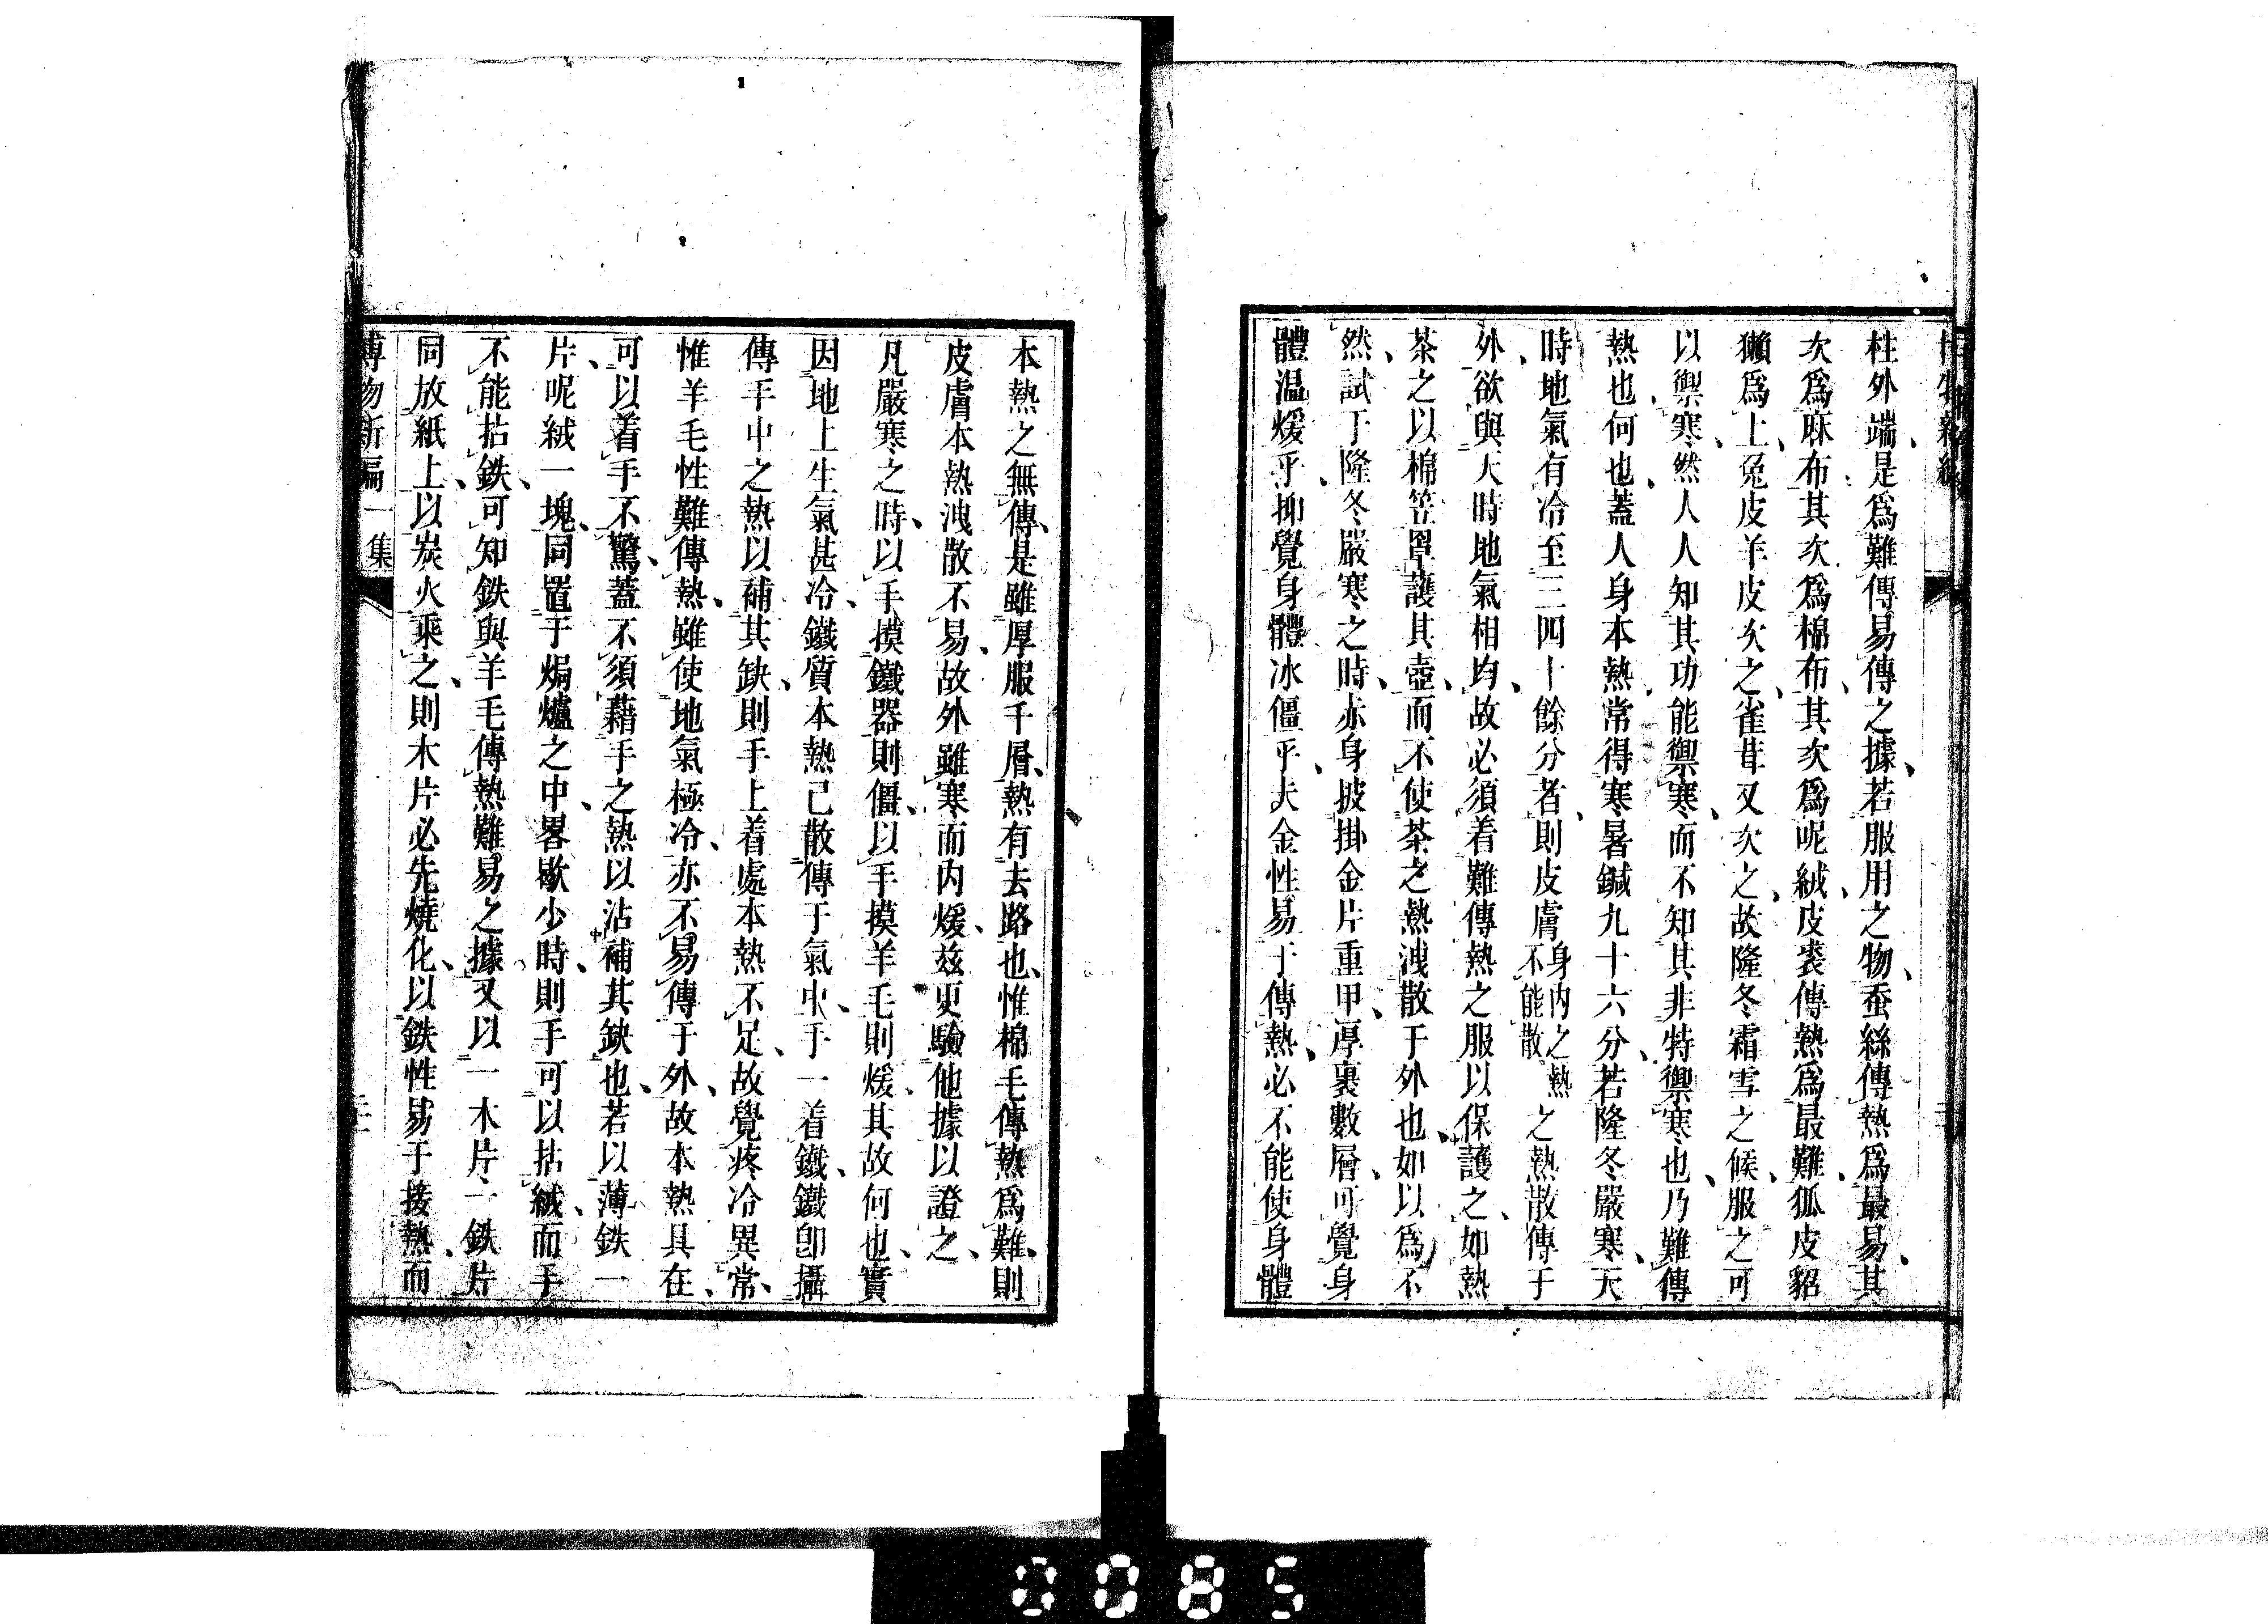 柱外端、是爲難傳易傳之據、若服用之物、蚕絲傳熱爲最易、其
次爲麻布、其次爲棉布、其次爲呢絨、皮裘傳熱爲最難、狐皮貂
獺爲上、兎皮羊皮次之、雀茸又次之、故隆冬霜雪之候、服之可
以禦寒、然人人知其功能禦寒、而不知其非特禦寒也、乃難傳
熱也、何也、蓋人身本熱、常得寒暑鍼九十六分、若隆冬嚴寒、天
時地氣有冷至三四十餘分者、則皮膚身內之熱不能散之熱散傳于
外、欲與天時地氣相均、故必須着難傳熱之服以保護之、如熱
茶之以棉笠罩護其壺、而不使茶之熱洩散于外也、如以爲不
然、試于隆冬嚴寒之時、赤身披掛金片重甲、厚裹數層、可覺身
體温煖乎、抑覺身體冰僵乎、夫金性易于傳熱、必不能使身體
本熱之無傳、是雖厚服千層、熱有去路也、惟棉毛傳熱爲難、則
皮膚本熱洩散不易、故外雖寒而內煖、茲更驗他據以證之、
凡嚴寒之時、以手摸鐵器則僵、以手摸羊毛則煖、其故何也、實
因地上生氣甚冷、鐵質本熱已散傳于氣中、手一着鐵、鐵卽攝
傳手中之熱以補其缺、則手上着處本熱不足、故覺疼冷異常、
惟羊毛性難傳熱、雖使地氣極冷、亦不易傳于外、故本熱具在、
可以着手不驚、蓋不須藉手之熱以沾補其缺也、若以薄鉄一
片、呢絨一塊、同置于焗爐之中、畧歇少時、則手可以拈絨、而手
不能拈鉄、可知鉄與羊毛傳熱難易之據、又以一木片、一鉄片
同放紙上、以炭火乘之、則木片必先燒化、以鉄性易于接熱、而
博物新編一集